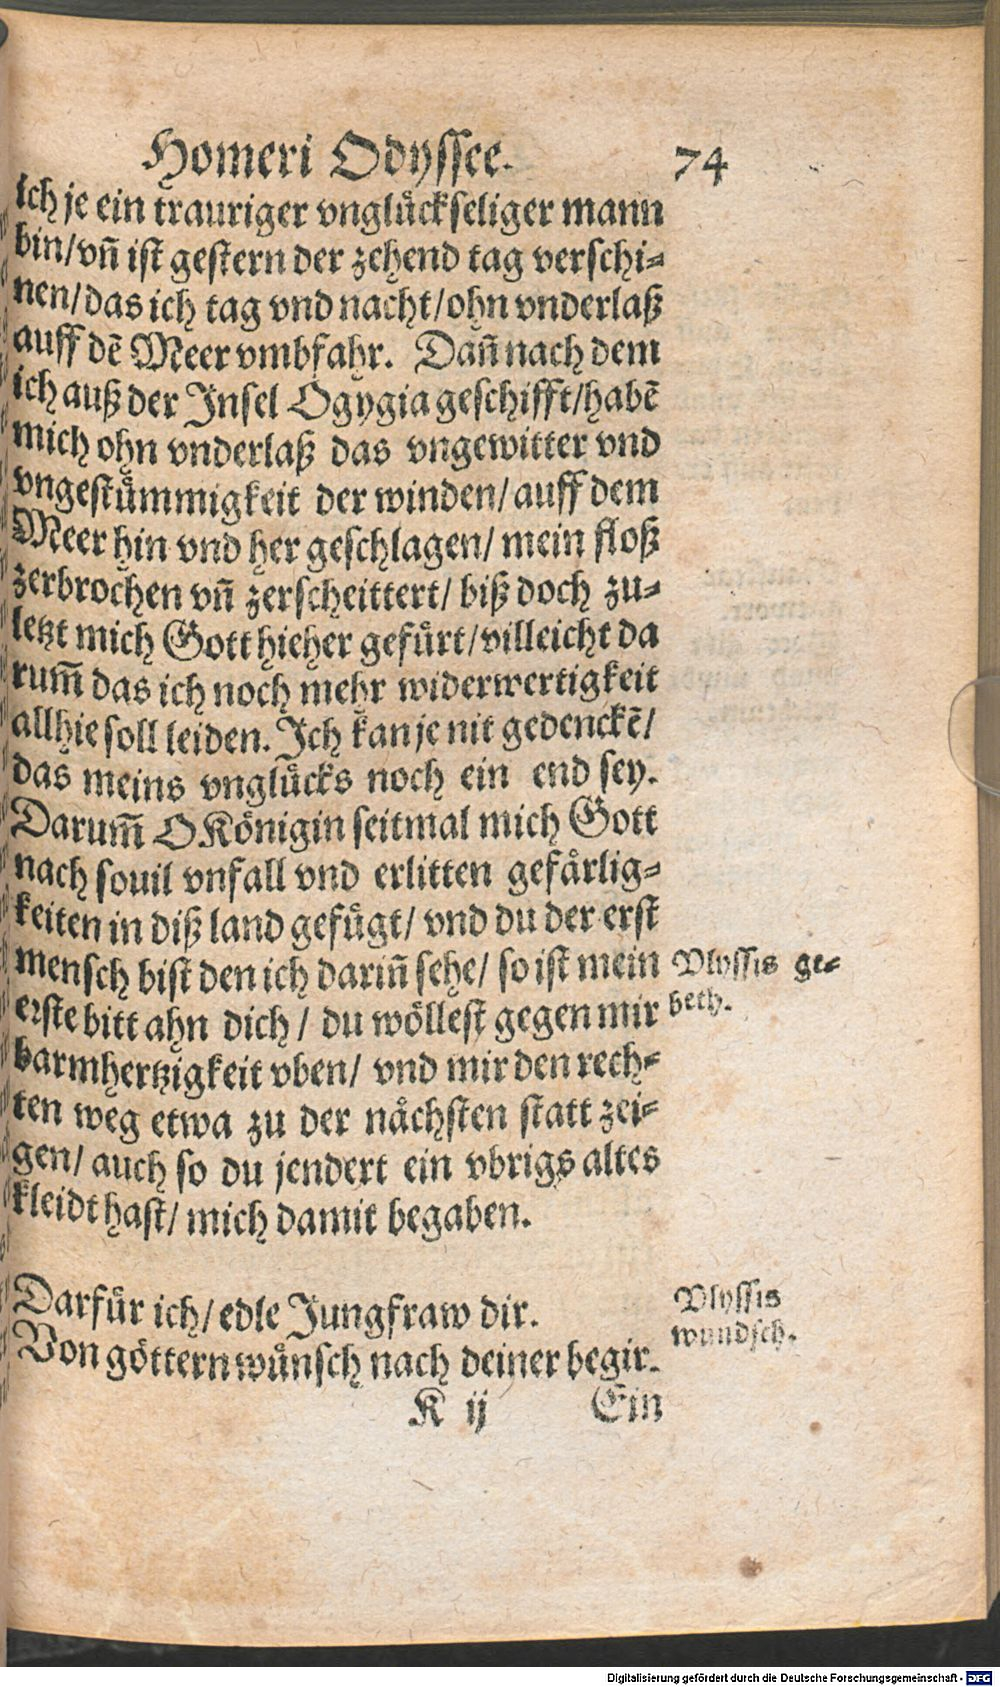 Homeri Odyssee. 74
ich je ein trauriger vnglückseliger mann
bin/ vñ ist gestern der zehend tag verschi-
nen/ das ich tag vnd nacht/ ohn vnderlaß
auff dẽ Meer vmbfahr. Dañ nach dem
ich auß der Insel Ogygia geschifft/ habẽ
mich ohn vnderlaß das vngewitter vnd
vngestümmigkeit der winden/ auff dem
Meer hin vnd her geschlagen/ mein floß
zerbrochen vñ zerscheittert/ biß doch zu-
letzt mich Gott hieher gefürt/ villeicht da
rum̃ das ich noch mehr widerwertigkeit
allhie soll leiden. Ich kan je nit gedenckẽ/
das meins vnglücks noch ein end sey.
Darum̃ O Königin seitmal mich Gott
nach souil vnfall vnd erlitten gefärlig-
keiten in diß land gefügt/ vnd du der erst
mensch bist den ich dariñ sehe/ so ist mein
erste bitt ahn dich / du wöllest gegen mir
barmhertzigkeit vben/ vnd mir den rech-
ten weg etwa zu der nächsten statt zei-
gen/ auch so du jendert ein vbrigs altes
kleidt hast/ mich damit begaben.
Vlyssis ge-
beth.
Darfür ich/ edle Jungfraw dir.
Von göttern wünsch nach deiner begir.
Vlyssis
wundsch.
K ij Ein
Digitalisierung gefördert durch die Deutsche Forschungsgemeinschaft - DFG